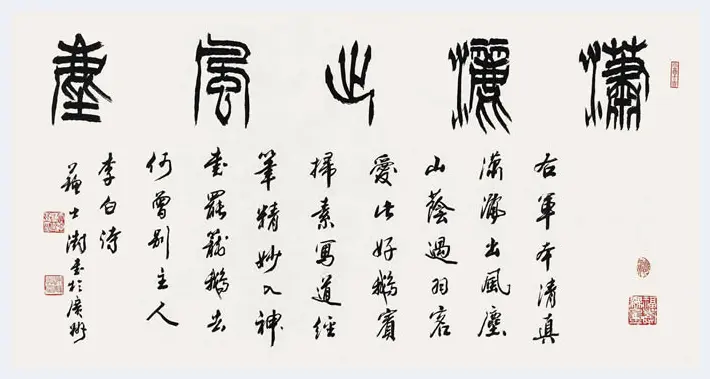 瀟灑出風塵
右軍本清真
瀟灑出風塵
山蔭過羽客
愛此好鵝賓
掃素寫道經
筆精妙入神
書罷籠鵝去
何曾別主人
李白詩
蘇士澍書於廣州